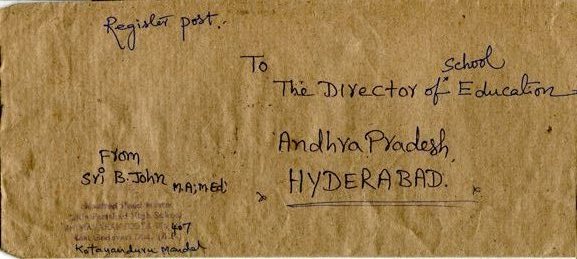 Register post.
To
The Director of School Education
Andhra Pradesh,
HYDERABAD.
From
Sri B. John M.A; M.Ed;
Head Master
High School
407
Kotananduru Mandal